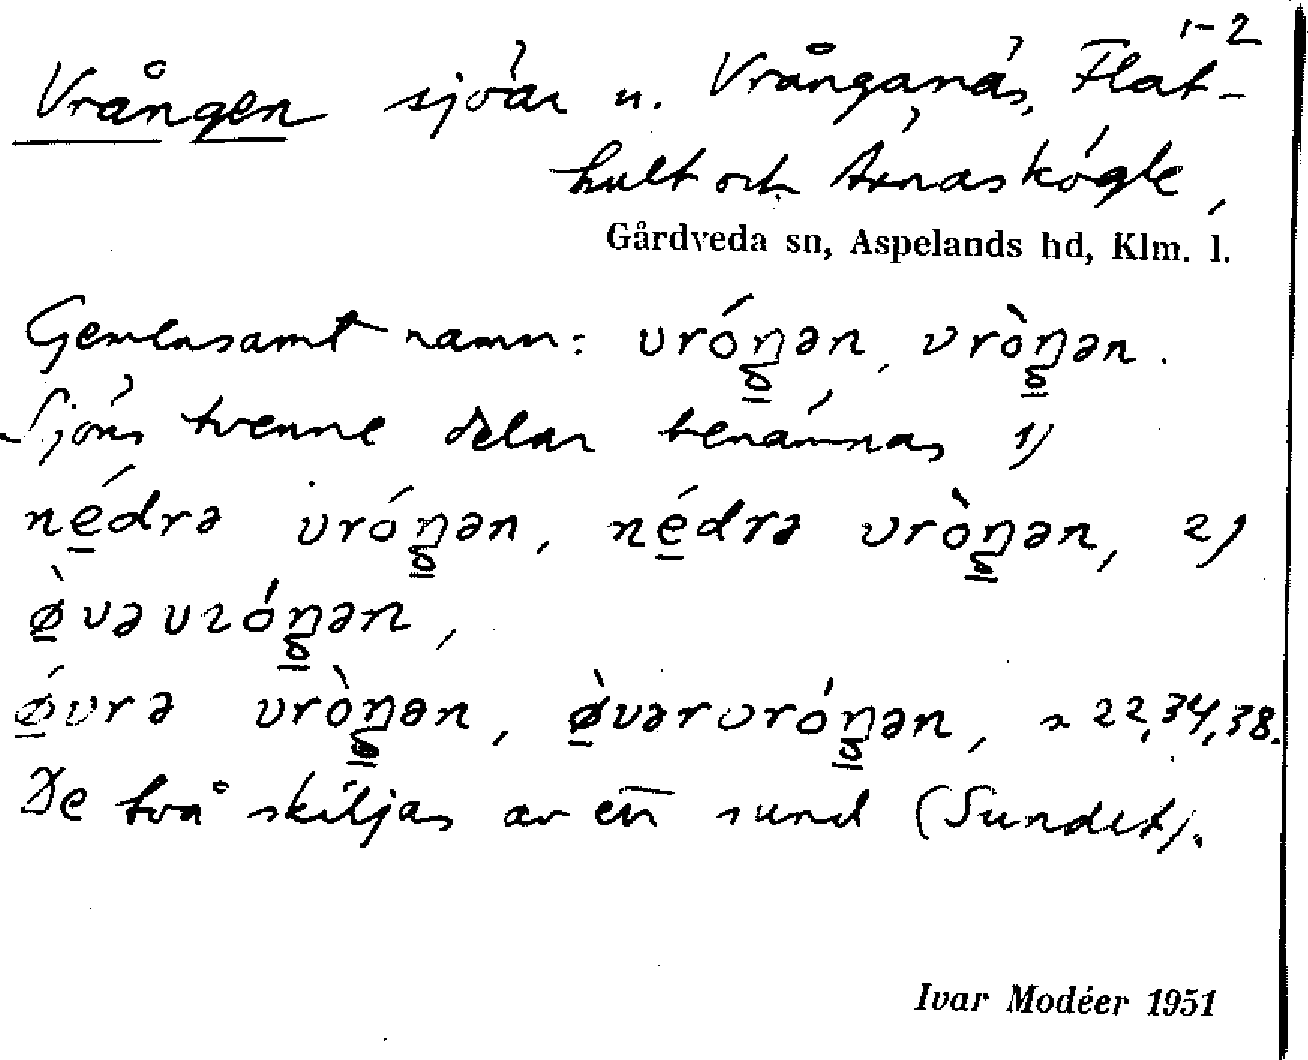 1-2
Vrången sjöar n. Vrånganäs, Flat-
hult och Årnaskögle,
Gårdveda sn, Aspelands hd, Klm. l.
Gemensamt namn: vróŋən, vròŋən.
Sjöns tvenne delar benämnas 1)
nédrə vróŋən, nédrə vròŋən, 2)
ø̀vəvróŋən,
ǿvrə vròŋən, ø̀vərvróŋən, s 22, 34, 38.
De två skiljas av ett sund (Sundet).
Ivar Modéer 1951